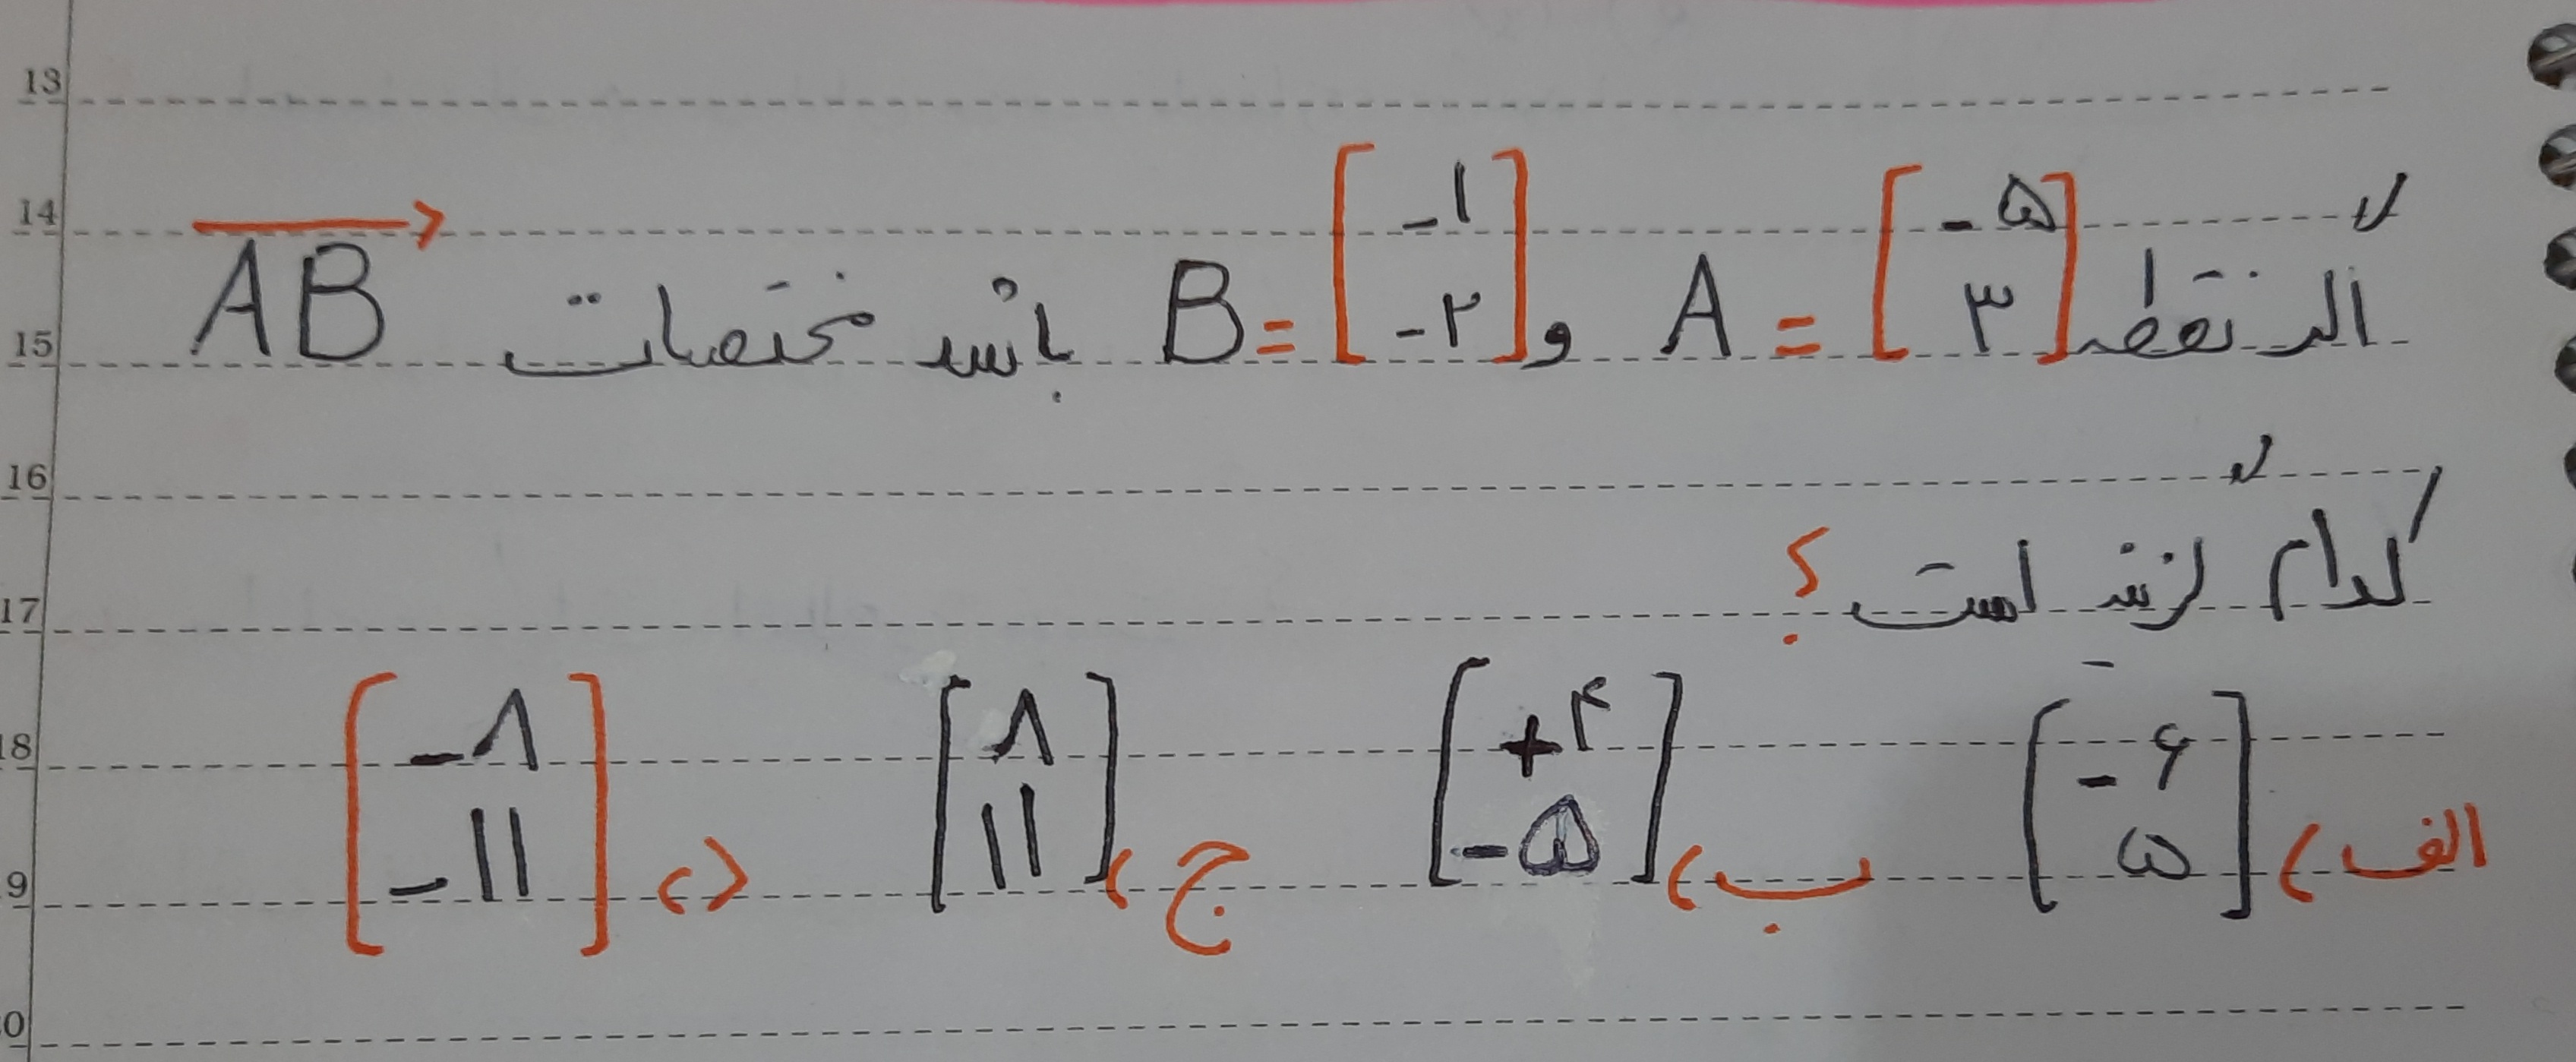 13
14
15
16
17
18
9
0
اگر نقطه [-۵ ۳] = A و [-۱ -۲] = B باشد مختصات AB
کدام گزینه است؟
الف) [-۶ ۵] ب) [+۴ -۵] ج) [۸ ۱۱] د) [-۸ -۱۱]